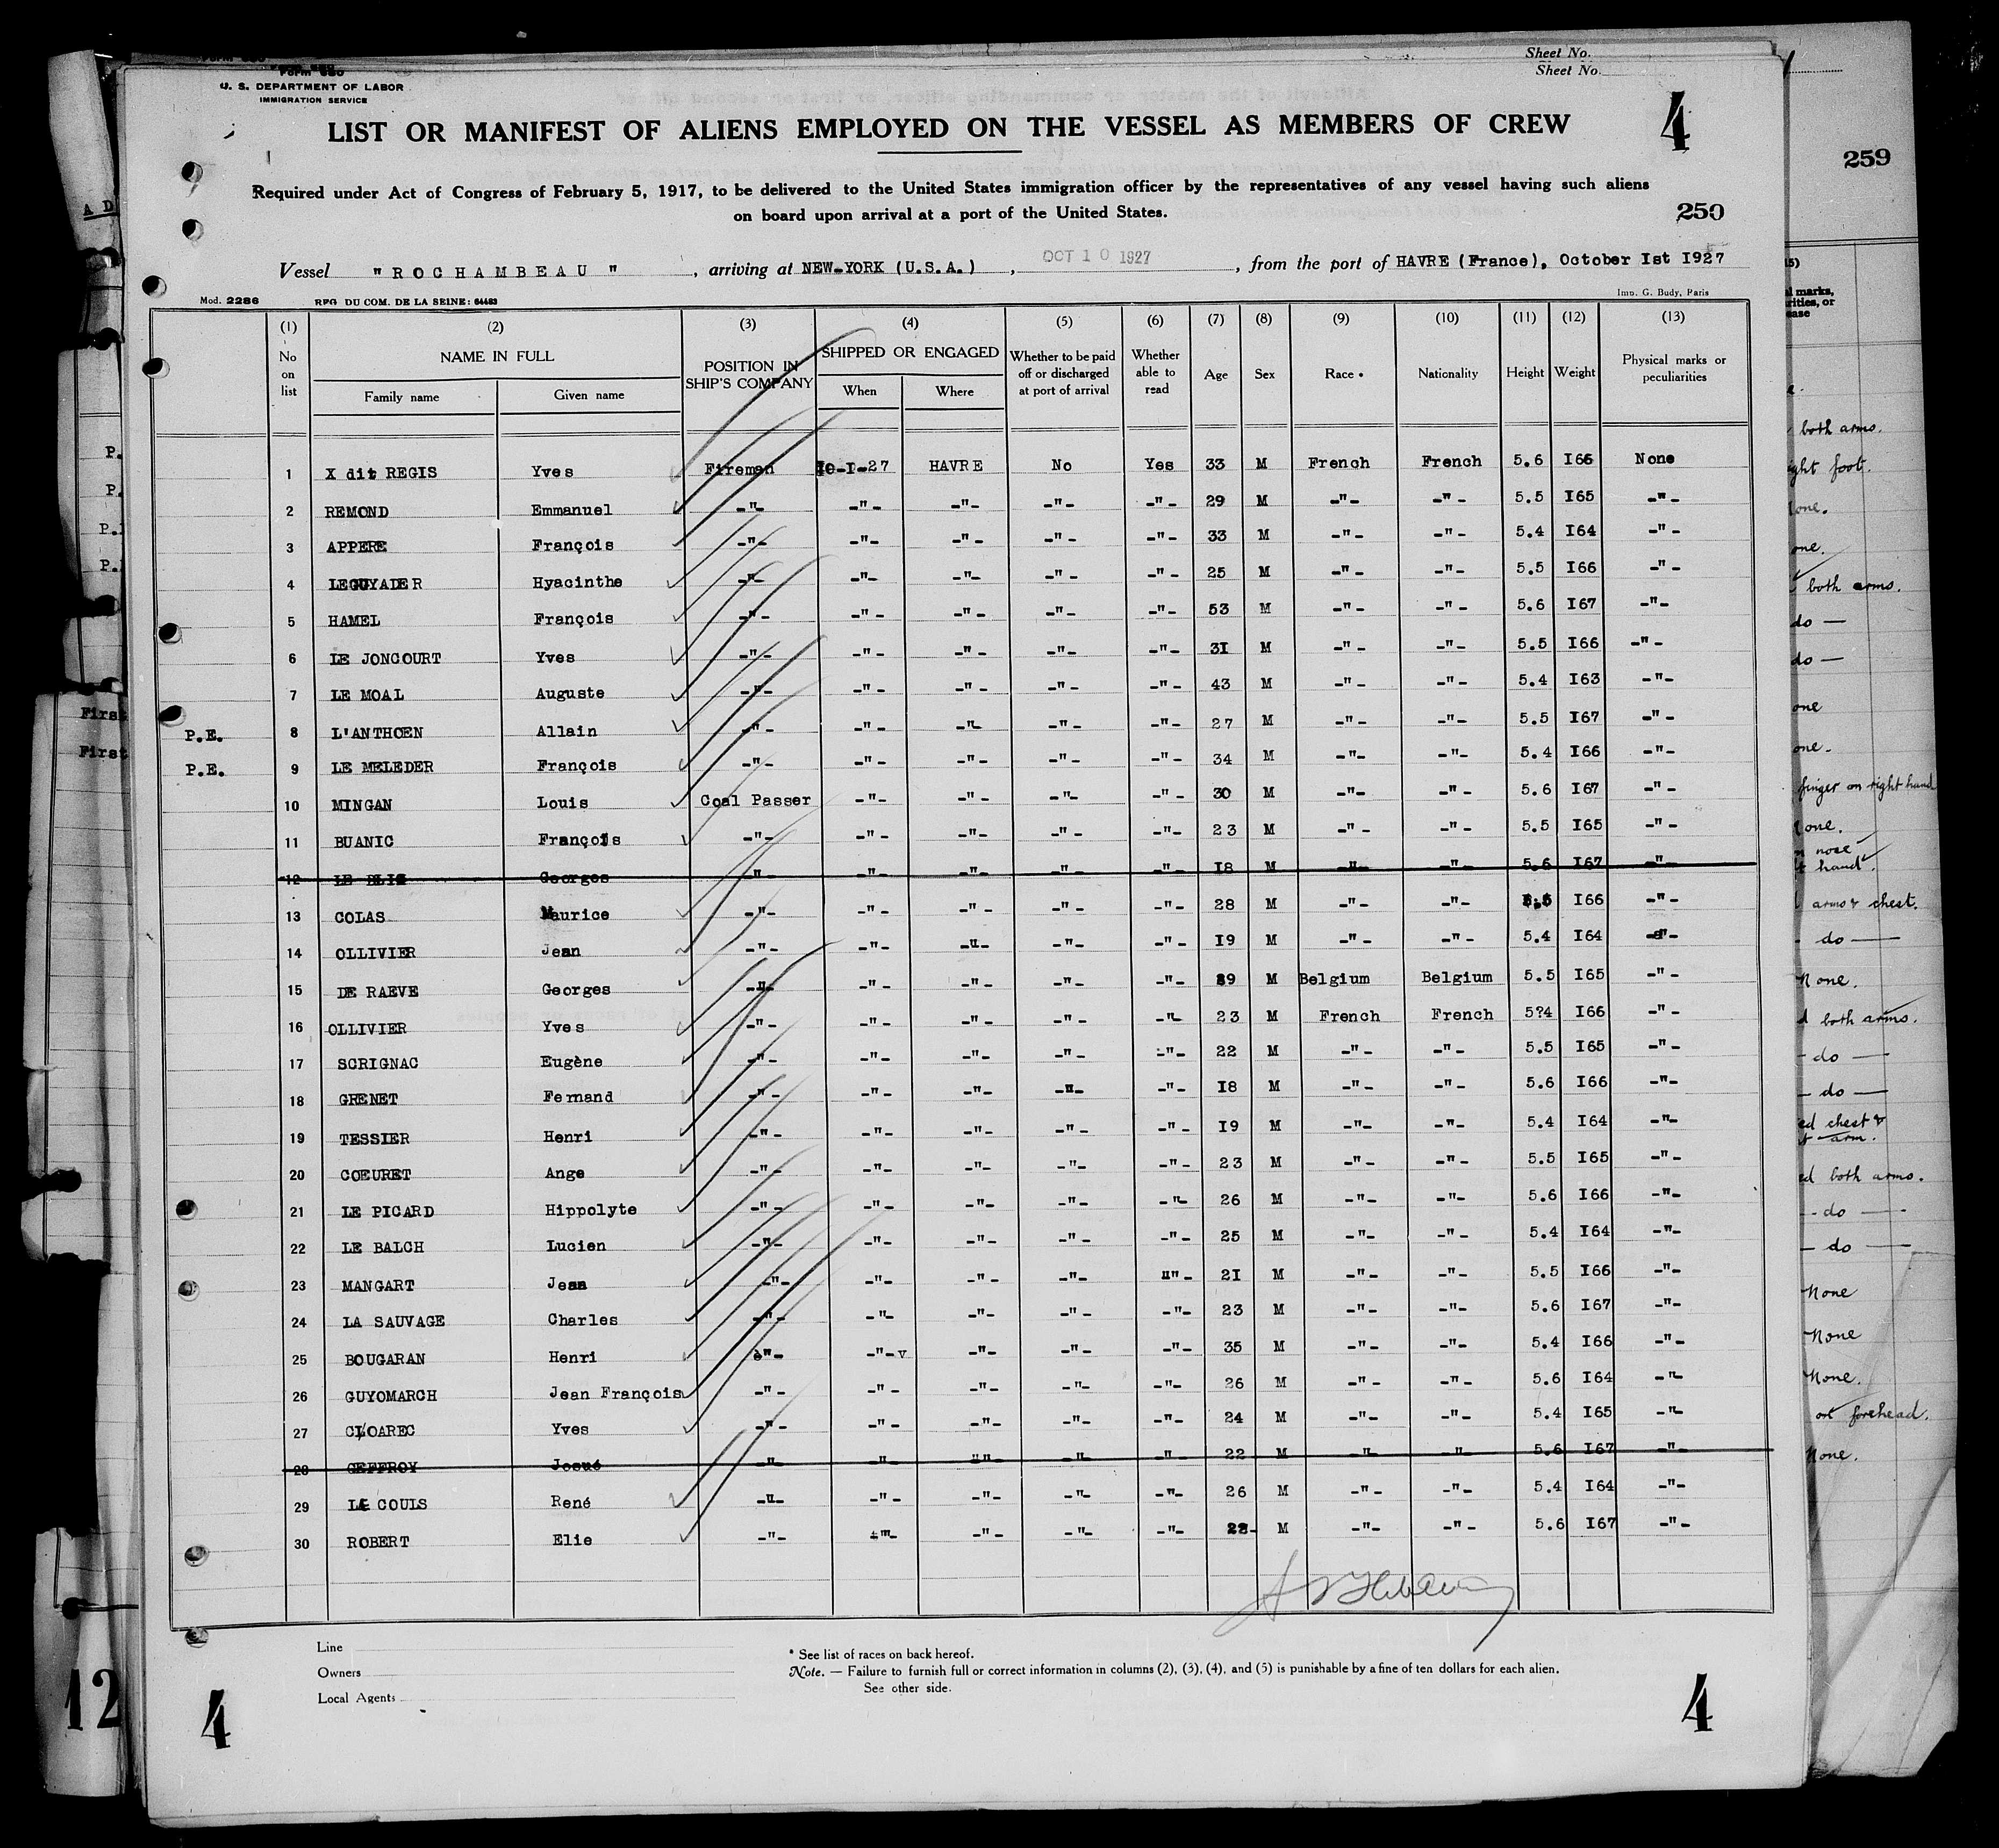 Sheet No.
Form 680
Sheet No.
U. S. DEPARTMENT OF LABOR
IMMIGRATION SERVICE
LIST OR MANIFEST OF ALIENS EMPLOYED ON THE VESSEL AS MEMBERS OF CREW
4
259
Required under Act of Congress of February 5, 1917, to be delivered to the United States immigration officer by the representatives of any vessel having such aliens
on board upon arrival at a port of the United States.
250
Vessel "ROCHAMBEAU", arriving at NEW-YORK (U.S.A.), OCT 10 1927, from the port of HAVRE (France), October Ist I927
Mod. 2286 REG DU COM. DE LA SEINE: 64483 Imp. G. Budy, Paris
(1) (2) (3) (4) (5) (6) (7) (8) (9) (10) (11) (12) (13)
No on list NAME IN FULL POSITION IN SHIP'S COMPANY SHIPPED OR ENGAGED Whether to be paid off or discharged at port of arrival Whether able to read Age Sex Race * Nationality Height Weight Physical marks or peculiarities
Family name Given name When Where
1 X dit REGIS Yves Fireman I0-I-27 HAVRE No Yes 33 M French French 5.6 I66 None
2 REMOND Emmanuel -"- -"- -"- -"- -"- 29 M -"- -"- 5.5 I65 -"-
3 APPERE François -"- -"- -"- -"- -"- 33 M -"- -"- 5.4 I64 -"-
4 LEGUYADER Hyacinthe -"- -"- -"- -"- -"- 25 M -"- -"- 5.5 I66 -"-
5 HAMEL François -"- -"- -"- -"- -"- 53 M -"- -"- 5.6 I67 -"-
6 LE JONCOURT Yves -"- -"- -"- -"- -"- 3I M -"- -"- 5.5 I66 -"-
7 LE MOAL Auguste -"- -"- -"- -"- -"- 43 M -"- -"- 5.4 I63 -"-
P.E. 8 L'ANTHOEN Allain -"- -"- -"- -"- -"- 27 M -"- -"- 5.5 I67 -"-
P.E. 9 LE MELEDER François -"- -"- -"- -"- -"- 34 M -"- -"- 5.4 I66 -"-
10 MINGAN Louis Coal Passer -"- -"- -"- -"- 30 M -"- -"- 5.6 I67 -"-
11 BUANIC François -"- -"- -"- -"- -"- 23 M -"- -"- 5.5 I65 -"-
12 LE Georges -"- -"- -"- -"- -"- I8 M -"- -"- 5.6 I67 -"-
13 COLAS Maurice -"- -"- -"- -"- -"- 28 M -"- -"- I66 -"-
14 OLLIVIER Jean -"- -"- -"- -"- -"- I9 M -"- -"- 5.4 I64 -"-
15 DE RAEVE Georges -"- -"- -"- -"- -"- M Belgium Belgium 5.5 I65 -"-
16 OLLIVIER Yves -"- -"- -"- -"- -"- 23 M French French 5?4 I66 -"-
17 SCRIGNAC Eugène -"- -"- -"- -"- -"- 22 M -"- -"- 5.5 I65 -"-
18 GRENET Fernand -"- -"- -"- -"- -"- I8 M -"- -"- 5.6 I66 -"-
19 TESSIER Henri -"- -"- -"- -"- -"- I9 M -"- -"- 5.4 I64 -"-
20 COEURET Ange -"- -"- -"- -"- -"- 23 M -"- -"- 5.5 I65 -"-
21 LE PICARD Hippolyte -"- -"- -"- -"- -"- 26 M -"- -"- 5.6 I66 -"-
22 LE BALCH Lucien -"- -"- -"- -"- -"- 25 M -"- -"- 5.4 I64 -"-
23 MANGART Jean -"- -"- -"- -"- ""- 2I M -"- -"- 5.5 I66 -"-
24 LA SAUVAGE Charles -"- -"- -"- -"- -"- 23 M -"- -"- 5.6 I67 -"-
25 BOUGARAN Henri è"- -"-v -"- -"- -"- 35 M -"- -"- 5.4 I66 -"-
26 GUYOMARCH Jean François -"- -"- -"- -"- -"- 26 M -"- -"- 5.6 I64 -"-
27 CLOAREC Yves -"- -"- -"- -"- -"- 24 M -"- -"- 5.4 I65 -"-
28 GEFFROY Josué -"- -"- ""- -"- -"- 22 M -"- -"- 5.6 I67 -"-
29 LE COUIS René -"- -"- -"- -"- -"- 26 M -"- -"- 5.4 I64 -"-
30 ROBERT Elie -"- -"- -"- -"- -"- M -"- -"- 5.6 I67 -"-
Line
Owners
Local Agents
* See list of races on back hereof.
Note. — Failure to furnish full or correct information in columns (2), (3), (4), and (5) is punishable by a fine of ten dollars for each alien.
See other side.
4
4
12
First
First
both arms.
foot.
both arms.
do —
do —
finger on right hand
nose
hand
arms & chest.
do —
None.
both arms.
do —
do —
chest &
arm.
both arms.
do —
do —
None
None
None.
forehead.
None.